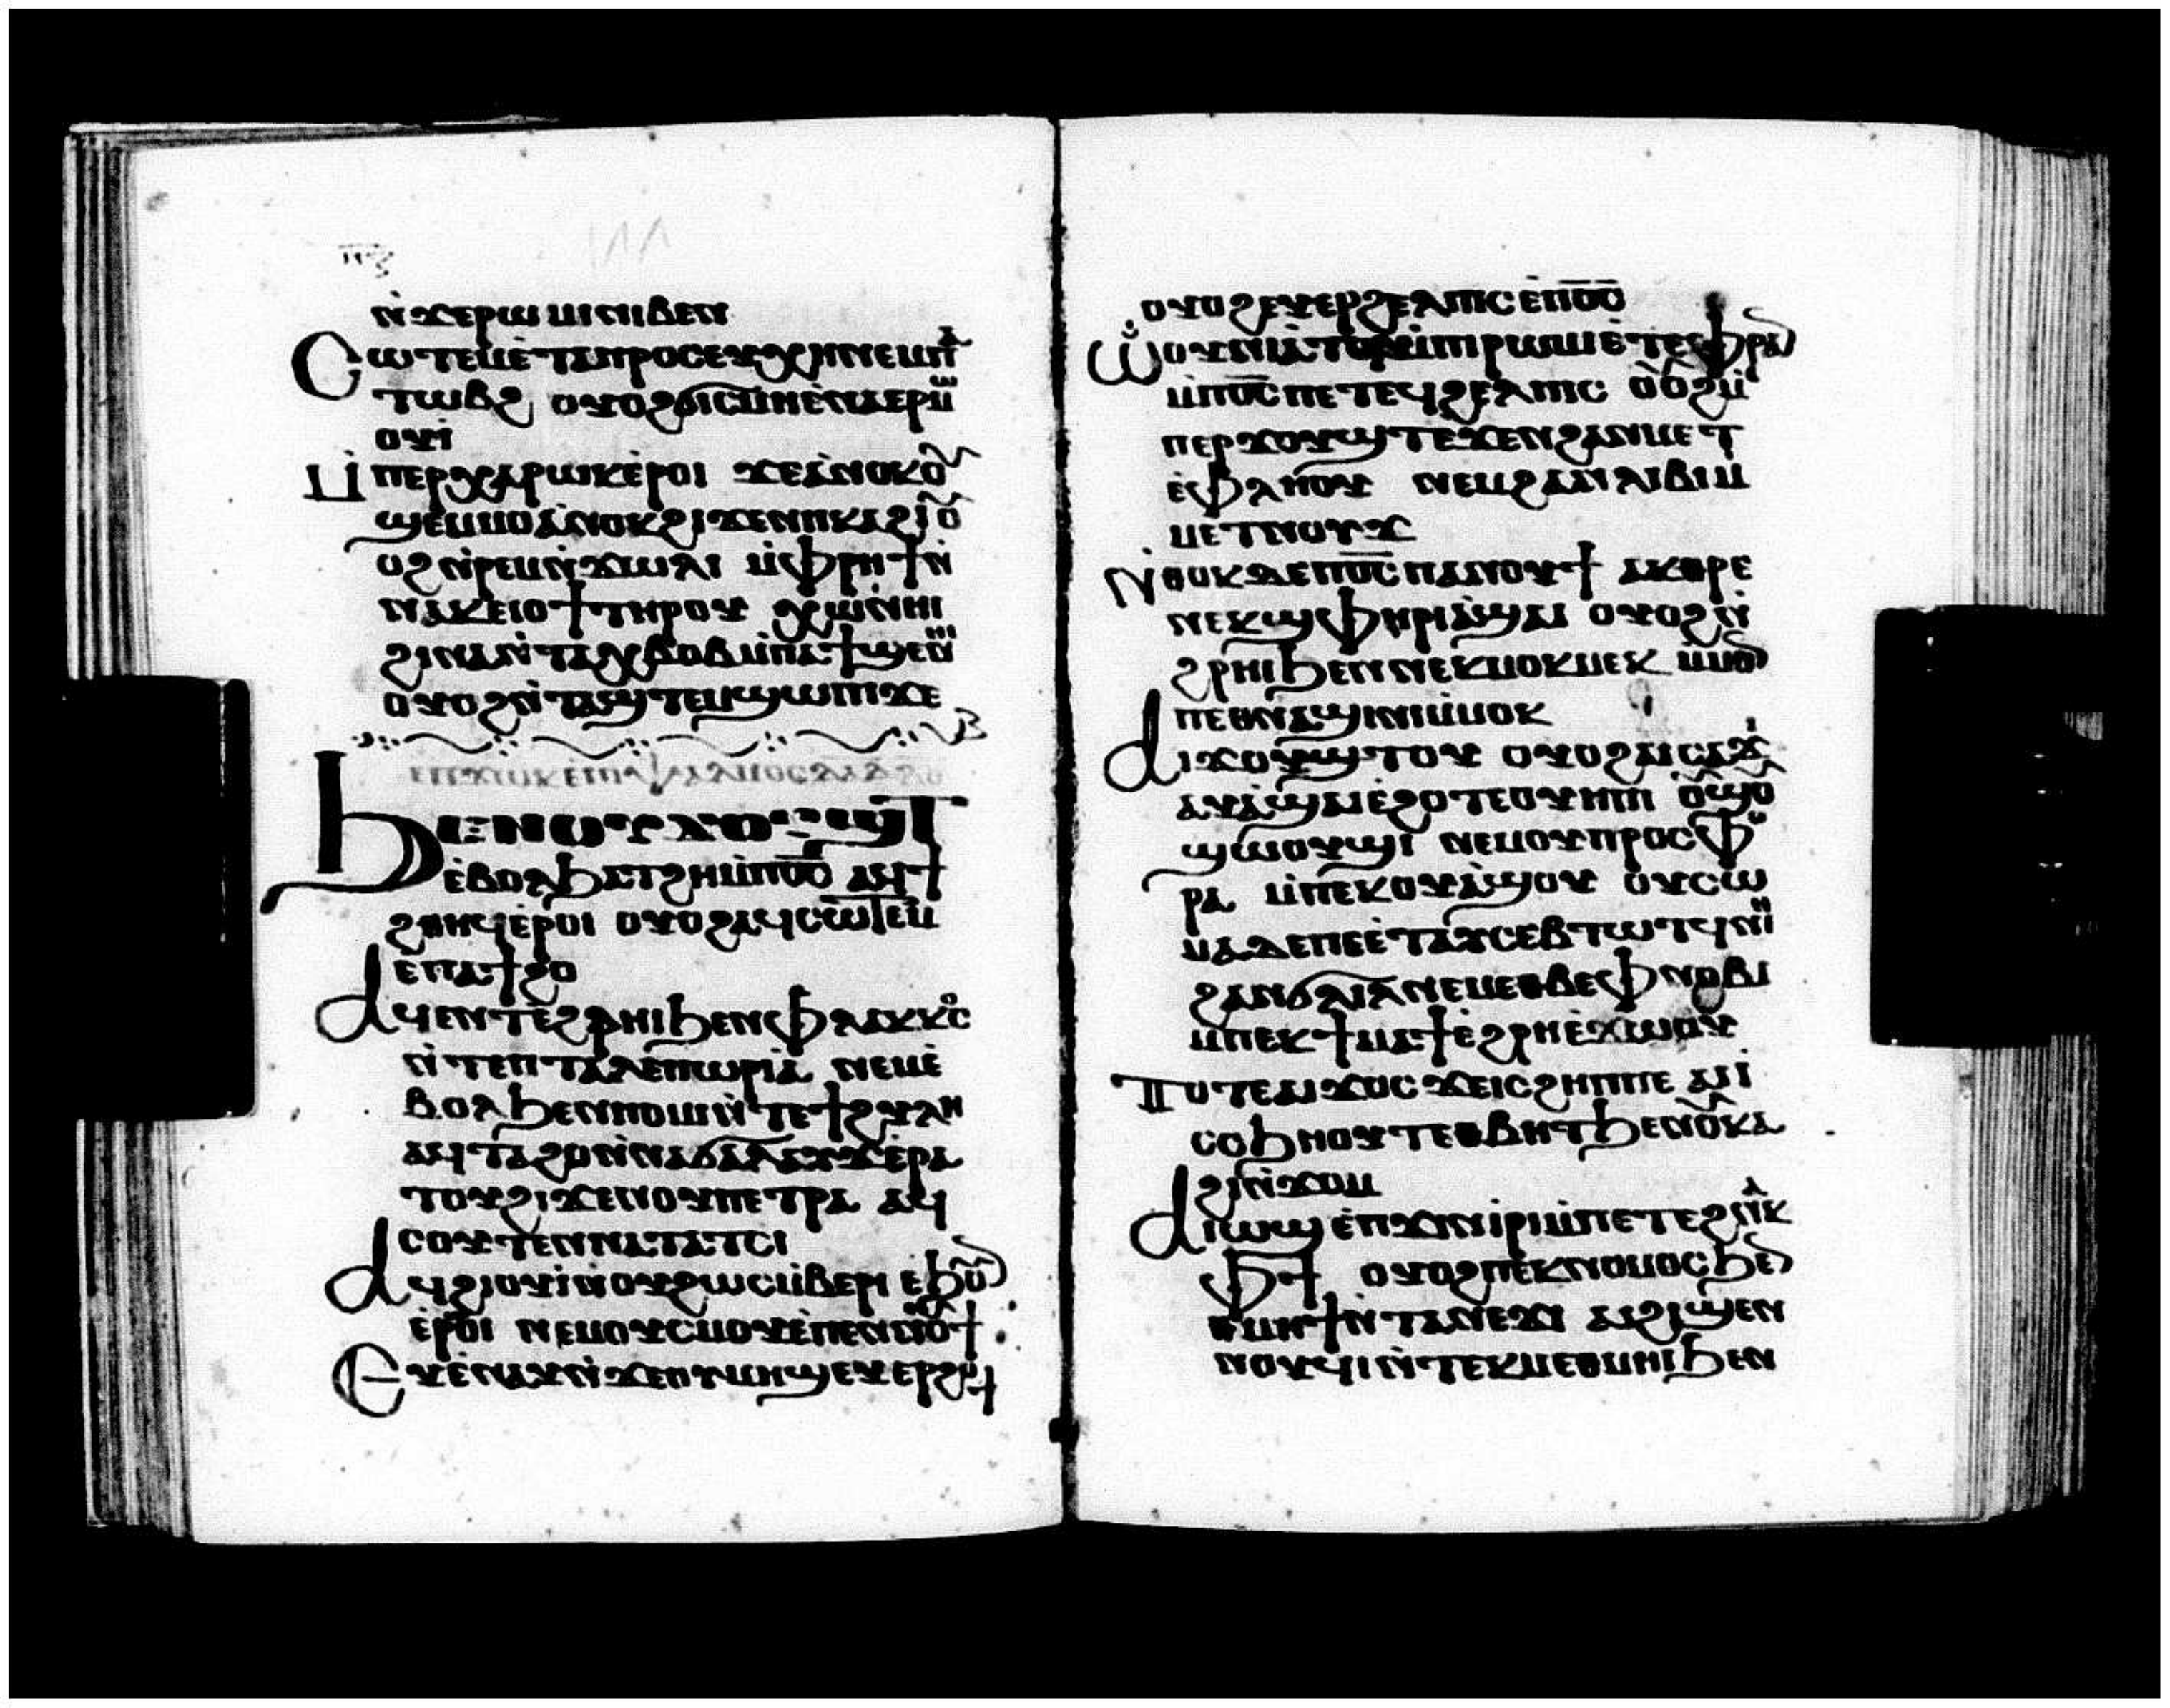 ⲛ̀ϫⲉⲣⲱⲙⲓ ⲛⲓⲃⲉⲛ
Ⲥⲱⲧⲉⲙⲉ̀ⲧⲁⲡⲣⲟⲥⲉⲩⲭⲏ ⲛⲉⲙⲡⲁ
ⲧⲱⲃϩ ⲟⲩⲟϩϭⲓⲥⲙⲏⲉ̀ⲛⲁⲉⲣⲙ
ⲟⲩⲓ̀
Ⲙ̀ⲡⲉⲣⲭⲁⲣⲱⲕⲉ̀ⲣⲟⲓ ϫⲉⲁ̀ⲛⲟⲕⲟⲩ
ϣⲉⲙⲙⲟⲁ̀ⲛⲟⲕϩⲓϫⲉⲛⲡⲕⲁϩⲓⲟⲩ
ⲟϩⲛ̀ⲣⲉⲙⲛ̀ϫⲱⲓⲗⲓ ⲙ̀ⲫⲣⲏϯⲛ̀
ⲛⲁⲕⲉⲓⲟϯⲧⲏⲣⲟⲩ ⲭⲱⲛⲏⲓ
ϩⲓⲛⲁⲛ̀ⲧⲁⲭⲃⲟⲃⲙ̀ⲡⲁϯϣⲉⲛⲏⲓ
ⲟⲩⲟϩⲛ̀ⲧⲁϣⲧⲉⲙϣⲱⲡⲓϫⲉ
Ϧⲉⲛⲟⲩϫⲟⲩϣⲧ
ⲉ̀ⲃⲟⲗϧⲁⲧϩⲏⲙ̀ⲡⲟ̅ⲥ̅ ⲁϥϯ
ϩⲑⲏϥⲉ̀ⲣⲟⲓ ⲟⲩⲟϩⲁϥⲥⲱⲧⲉⲙ
ⲉ̀ⲡⲁϯϩⲟ
Ⲁϥⲉⲛⲧⲉ̀ϩⲣⲏⲓϧⲉⲛⲫⲗⲁⲕⲕⲟⲥ
ⲛ̀ⲧⲉⲡⲧⲁⲗⲉⲡⲱⲣⲓⲁ̀ ⲛⲉⲙⲉ̀
ⲃⲟⲗϧⲉⲛⲡⲟⲙⲓⲛ̀ⲧⲉϯϩⲩⲗⲏ
ⲁϥⲧⲁϩⲟⲛ̀ⲛⲁϭⲁⲗⲁⲩϫⲉ̀ⲣⲁ
ⲧⲟⲩϩⲓϫⲉⲛⲟⲩⲡⲉⲧⲣⲁ ⲁϥ
ⲥⲟⲩⲧⲉⲛⲛⲁⲧⲁⲧⲥⲓ
Ⲁϥϩⲓⲟⲩⲓ̀ⲛ̀ⲟⲩϩⲱⲥⲙ̀ⲃⲉⲣⲓ ⲉϧⲟⲩⲛ
ⲉ̀ⲣⲟⲓ ⲛⲉⲙⲟⲩⲥⲙⲟⲩⲉ̀ⲡⲉⲛⲛⲟⲩϯ
Ⲉⲩⲉ̀ⲛⲁⲩⲛ̀ϫⲉⲟⲩⲙⲏϣⲉⲩⲉⲣϩⲟϯ
ⲟⲩⲟϩⲉⲩⲉⲣϩⲉⲗⲡⲓⲥⲉ̀ⲡⲟ̅ⲥ̅
Ⲱ̀ⲟⲩⲛⲓⲁ̀ⲧϥⲙ̀ⲡⲓⲣⲱⲙⲓⲉ̀ⲧⲉⲫⲣⲁⲛ
ⲙ̀ⲡⲟ̅ⲥ̅ⲡⲉⲧⲉϥϩⲉⲗⲡⲓⲥ ⲟⲩⲟϩⲙ̀
ⲡⲉⲣϫⲟⲩϣⲧⲉϫⲉⲛϩⲁⲛⲙⲉⲧ
ⲉ̀ⲫⲗⲏⲟⲩ ⲛⲉⲙϩⲁⲛⲗⲓⲃⲓⲙ
ⲙⲉⲧⲛⲟⲩϫ
Ⲛ̀ⲑⲟⲕⲇⲉⲡⲟ̅ⲥ̅ⲡⲁⲛⲟⲩϯ ⲁⲕⲑⲣⲉ
ⲛⲉⲕϣⲫⲏⲣⲓⲁ̀ϣⲁⲓ ⲟⲩⲟϩⲛ̀
ϩⲣⲏⲓϧⲉⲛⲛⲉⲕⲙⲟⲕⲙⲉⲕ ⲙ̀ⲙⲟⲛ
ⲡⲉⲑⲛⲁϣⲓⲛⲓⲙ̀ⲙⲟⲕ
Ⲁⲓϫⲟⲩϣⲧⲟⲩ ⲟⲩⲟϩⲁⲓⲥⲁϫⲓ
ⲁⲩⲁ̀ϣⲁⲓⲉ̀ϩⲟⲧⲉⲟⲩⲏⲡⲓ ⲟⲩϣⲟⲩ
ϣⲱⲟⲩϣⲓ ⲛⲉⲙⲟⲩⲡⲣⲟⲥⲫⲟ
ⲣⲁ ⲙ̀ⲡⲉⲕⲟⲩⲁ̀ϣⲟⲩ ⲟⲩⲥⲱ
ⲙⲁⲇⲉⲡⲉⲉ̀ⲧⲁⲕⲥⲉⲃⲧⲱⲧϥⲛⲏⲓ
ϩⲁⲛϭⲗⲓⲗⲛⲉⲙⲉⲑⲃⲉⲫⲛⲟⲃⲓ
ⲙⲡⲉⲕϯⲙⲁϯⲉ̀ϩⲣⲏⲉ̀ϫⲱⲟⲩ
Ⲧⲟⲧⲉⲁⲓϫⲟⲥ ϫⲉⲓⲥϩⲏⲡⲡⲉ ⲁⲓⲓ̀
ⲥϧⲏⲟⲩⲧⲉⲑⲃⲏⲧϧⲉⲛⲟⲩⲕⲁ
ϩⲓⲛ̀ϫⲱⲙ
Ⲁⲓⲟⲩⲱϣ ⲉ̀ⲡϫⲓⲛⲓ̀ⲣⲓⲙ̀ⲡⲉⲧⲉϩⲛⲁⲕ
ⲫϯ ⲟⲩⲟϩⲡⲉⲕⲛⲟⲙⲟⲥϧⲉⲛ
ⲑⲙⲏϯⲛ̀ⲧⲁⲛⲉϫⲓ ⲁⲓϩⲓϣⲉⲛ
ⲛⲟⲩϥⲓⲛ̀ⲧⲉⲕⲙⲉⲑⲙⲏⲓϧⲉⲛ